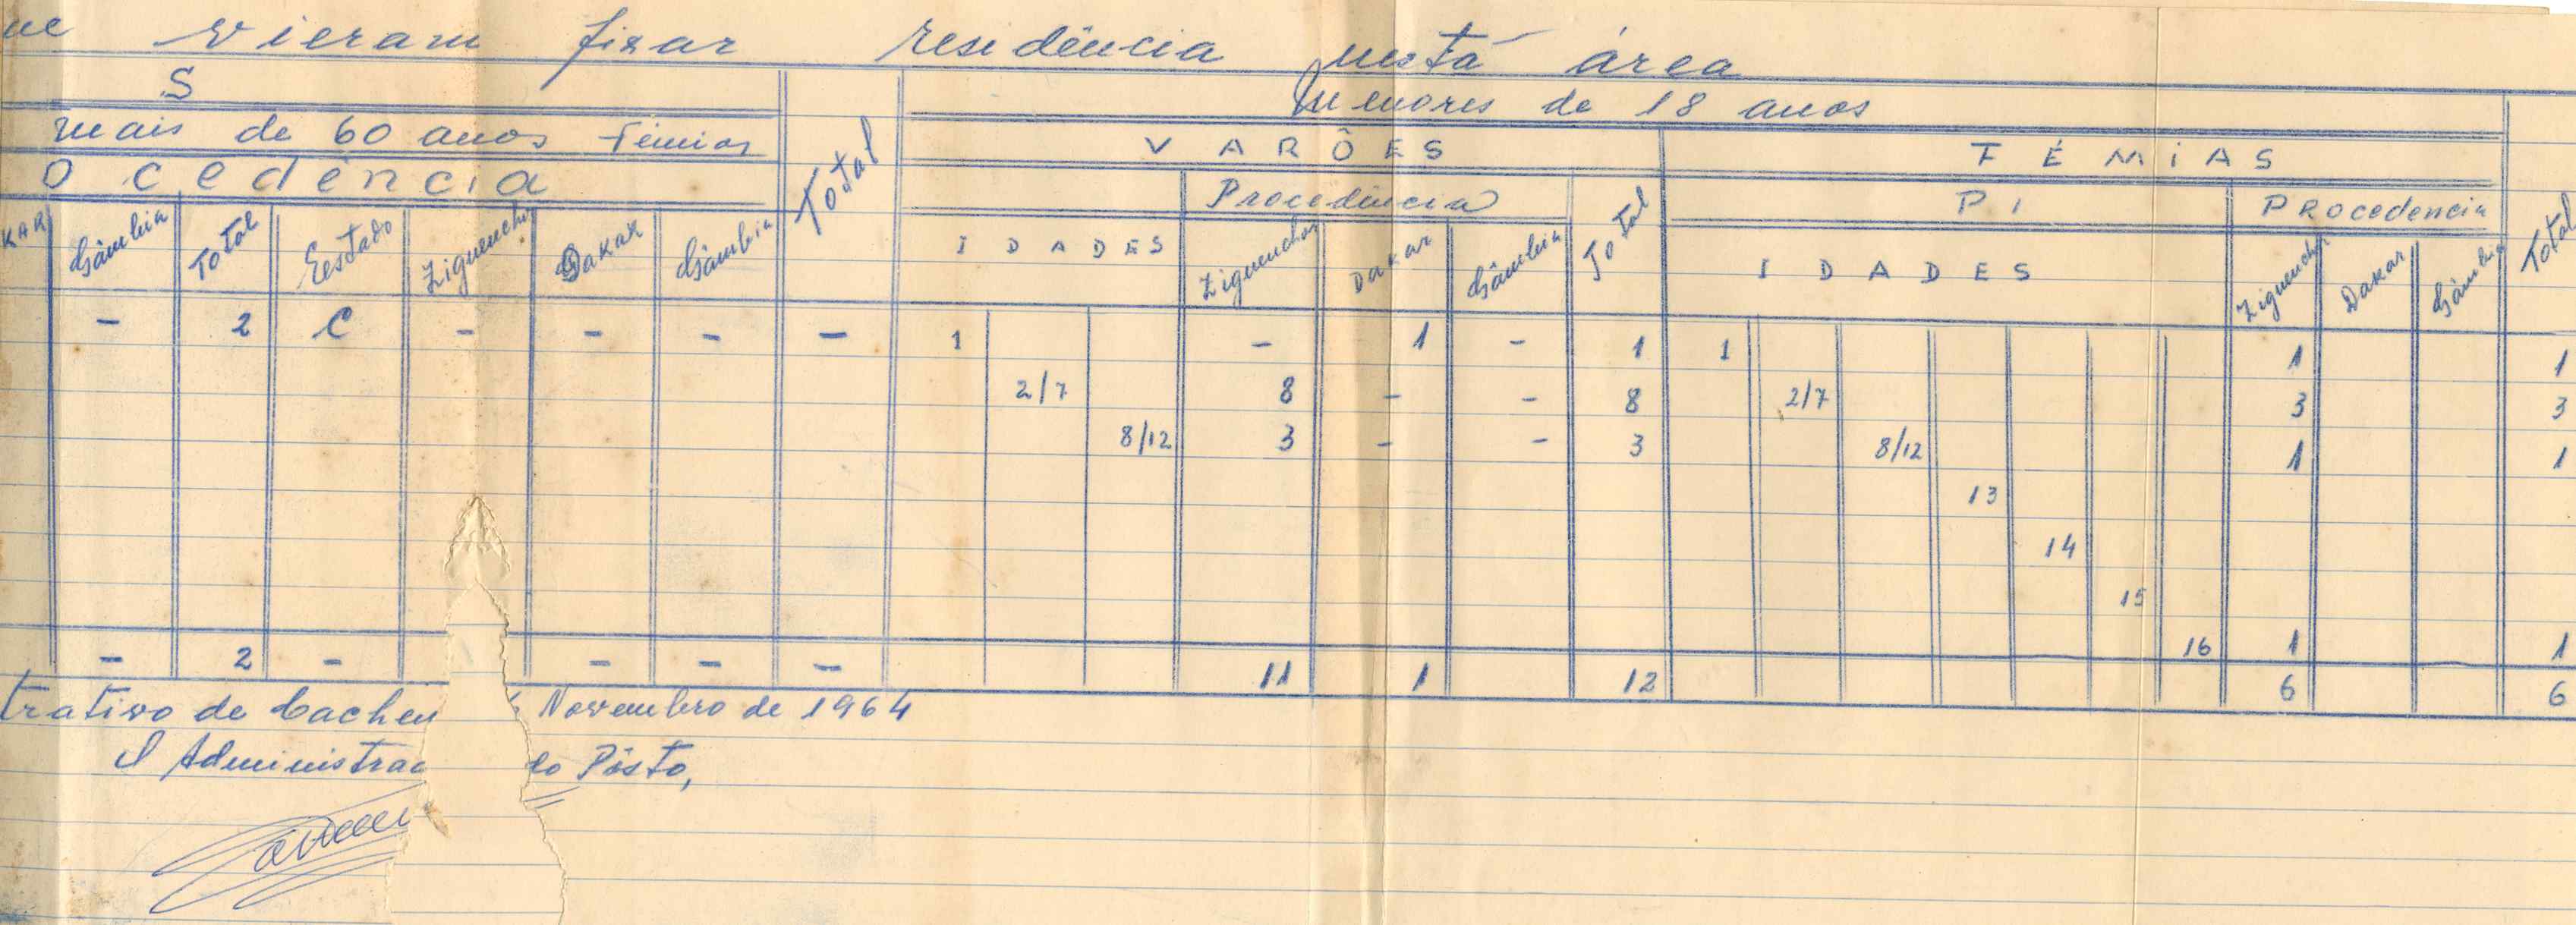 ue vieram fixar residência nesta área
S
Menores de 18 anos
mais de 60 anos Fémias
Total
VARÕES
FÉMiAS
ocedência
Procedência
Total
PI
Procedencia
Total
KAR Gâmbia Total Estado Ziguenchor Dakar Gâmbia
IDADES
Ziguenchor Dakar Gâmbia
IDADES
Ziguenchor Dakar Gâmbia
- 2 C - - - - 1 - 1 - 1 1 1 1
2/7 8 - - 8 2/7 3 3
8/12 3 - - 3 8/12 1 1
13
14
15
- 2 - - - - 16 1 1
11 1 12 6 6
trativo de Cacheu Novembro de 1964
O Administrad do Pôsto,